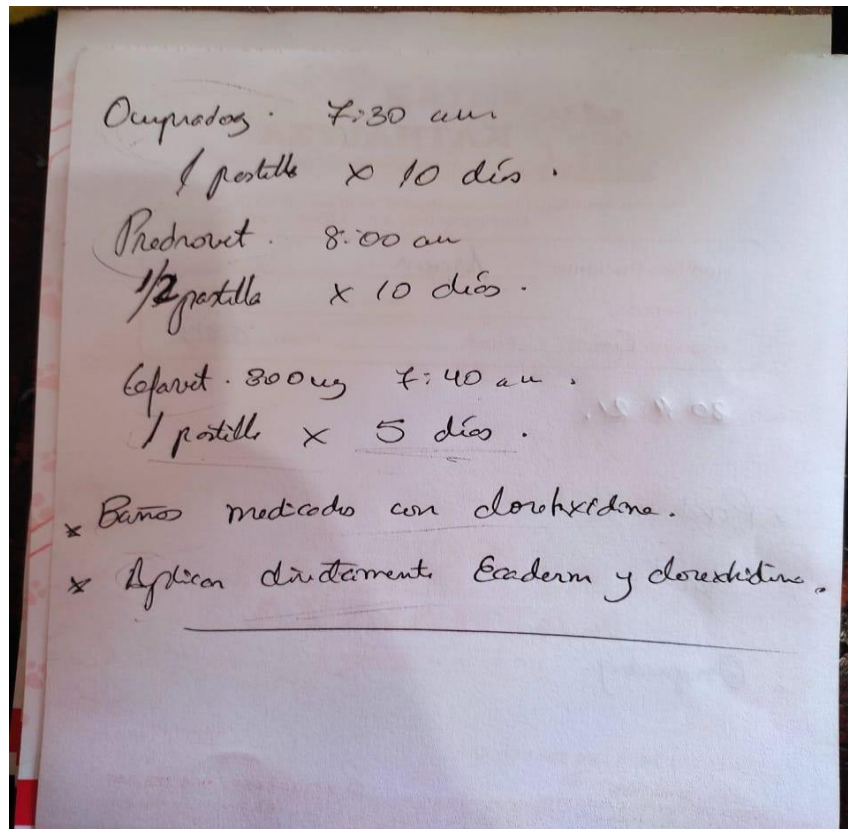 7:30 am
1 pastilla x 10 días.
Prednovet. 8:00 am
1/2 pastilla x 10 días.
Cefavet. 800 mg 7:40 am.
1 pastilla x 5 días.
x Baños medicados con clorehxidina.
x Aplicar directamente Ecaderm y clorexhidina.